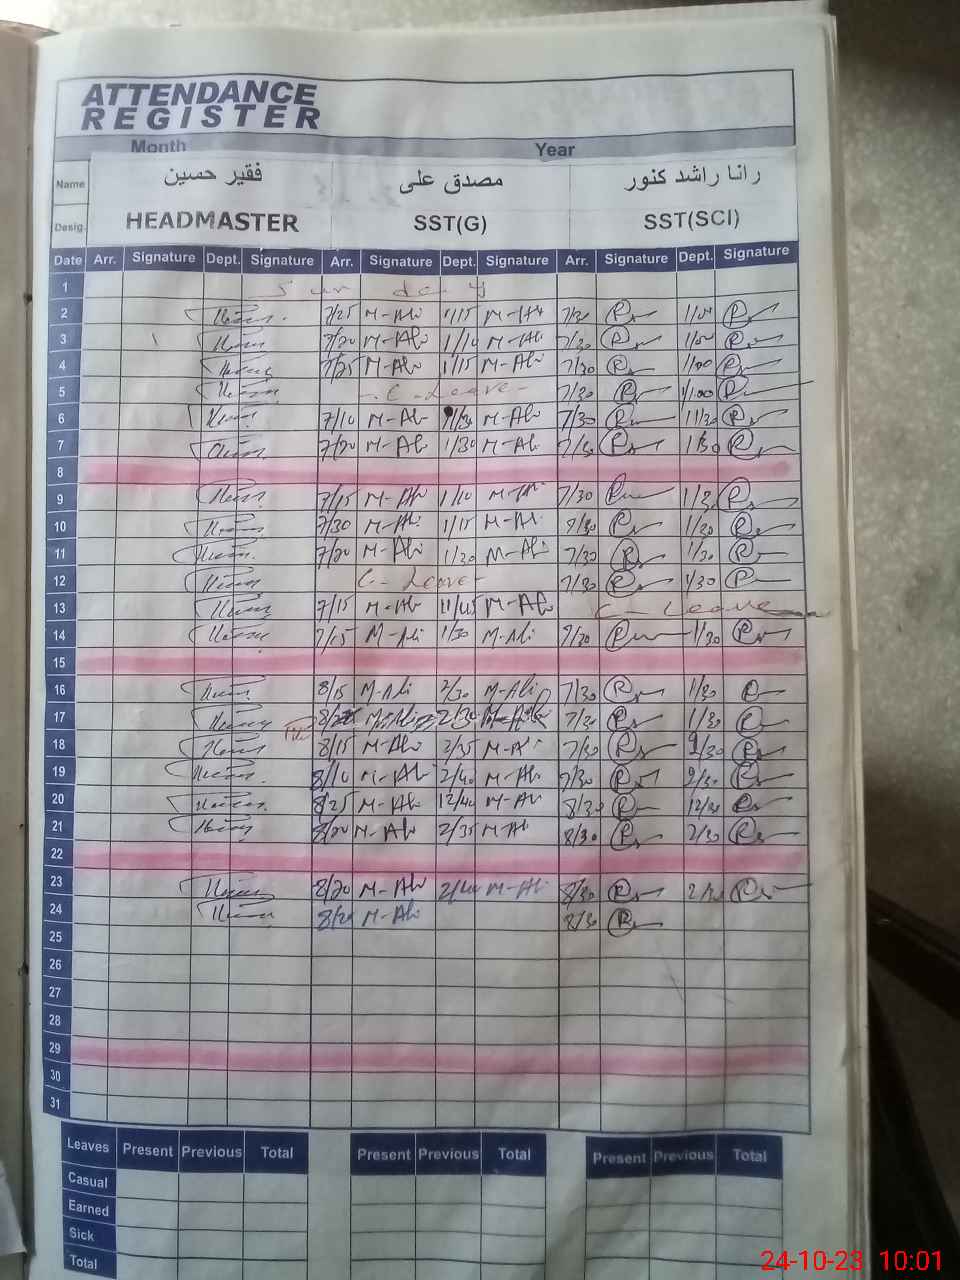 ATTENDANCE
REGISTER
Month Year
Name فقیر حسین مصدق علی رانا راشد کنور
Desig. HEADMASTER SST(G) SST(SCI)
Date Arr. Signature Dept. Signature Arr. Signature Dept. Signature Arr. Signature Dept. Signature
1 Sunday
2 7/25 M-Ali 1/15 7/30 1/00
3 7/20 M-Ali 1/10 M-Ali 7/30 1/00
4 7/25 M-Ali 1/15 M-Ali 7/30 1/00
5 C-Leave- 7/30 1/00
6 7/10 M-Ali M-Ali 7/30 11/30
7 7/20 M-Ali 1/30 M-Ali 7/30 1/30
8
9 7/15 M-Ali 1/10 M-Ali 7/30 1/30
10 7/30 M-Ali 1/15 M-Ali 7/30 1/30
11 7/20 M-Ali 1/30 M-Ali 7/30 1/30
12 C-Leave- 7/30 1/30
13 7/15 M-Ali 11/45 M-Ali C-Leave
14 7/15 M-Ali 1/30 M-Ali 7/30 1/30
15
16 8/15 M-Ali 2/30 M-Ali 7/30 1/30
17 2/30 M-Ali 7/30 1/30
18 8/15 M-Ali 2/35 M-Ali 7/30 /30
19 8/10 M-Ali 2/40 M-Ali 7/30 2/30
20 8/25 M-Ali 12/40 M-Ali 8/30 12/30
21 8/20 M-Ali 2/35 M-Ali 8/30 2/30
22
23 8/20 M-Ali 2/40 M-Ali 8/30 2/30
24 8/20 M-Ali 8/30
25
26
27
28
29
30
31
Leaves Present Previous Total Present Previous Total Present Previous Total
Casual
Earned
Sick
Total
24-10-23 10:01